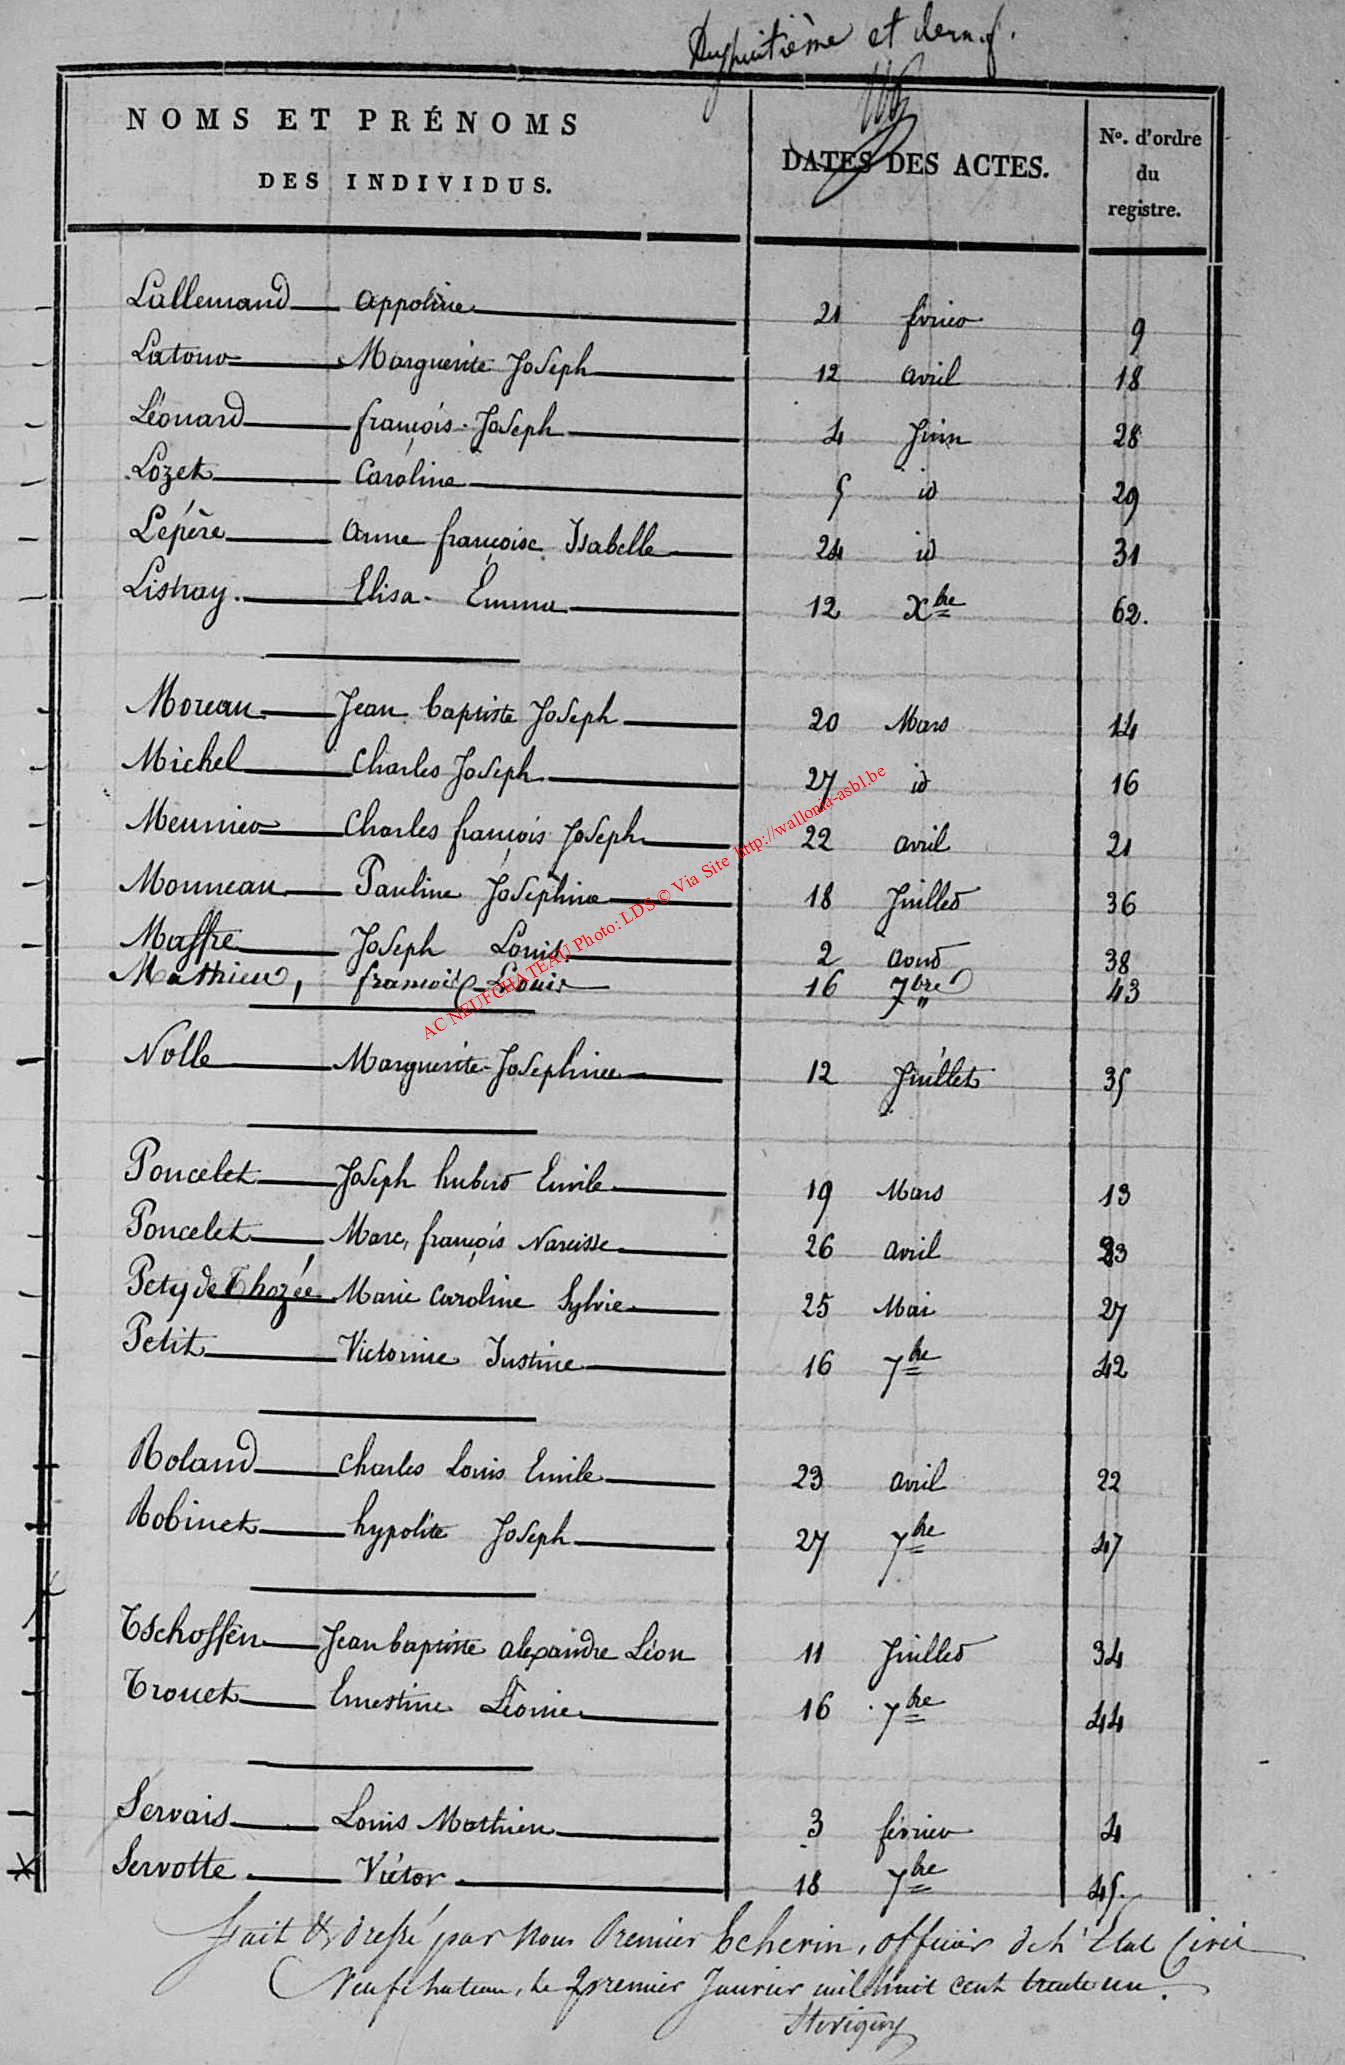 Dixhuitième et dern. f.
NOMS ET PRÉNOMS
DES INDIVIDUS.
DATES DES ACTES.
No. d'ordre
du
registre.
Lallemand appoline 21 fevrier 9
Latour Marguerite Joseph 12 avril 18
Léonard françois-Joseph 4 Juin 28
Lozet Caroline 5 id 29
Lepère anne françoise Isabelle 24 id 31
Listray. Elisa Emma 12 Xbre 62.
Moreau Jean baptiste Joseph 20 Mars 14
Michel Charles Joseph 27 id 16
Meunier Charles françois Joseph 22 avril 21
Monneau Pauline Joséphine 18 Juillet 36
Maffre Joseph Louis 2 aout 38
Mathieu, francois Louis 16 7bre 43
Nolle Marguerite-Josephinee 12 Juillet 35
Poncelet Joseph hubert Emile 19 Mars 13
Poncelet Marc, françois Narcisse 26 avril 23
Pety de Thozée Marie Caroline Sylvie 25 Mai 27
Petit Victorine Justine 16 7bre 42
Roland Charles Louis Emile 23 avril 22
Robinet hypolite Joseph 27 7bre 47
Tschoffen Jean baptiste alexandre Léon 11 Juillet 34
Trouet Ernestine Léonie 16 7bre 44
Servais Louis Mathieu 3 février 4
Servotte Victor 18 7bre 45.
fait & dressé par Nous Premier Echevin, officier de l'Etat Civil
Neufchateau, le premier Janvier mil huit cent trente un.
AC NEUFCHATEAU Photo: LDS © Via Site http://wallonia-asbl.be